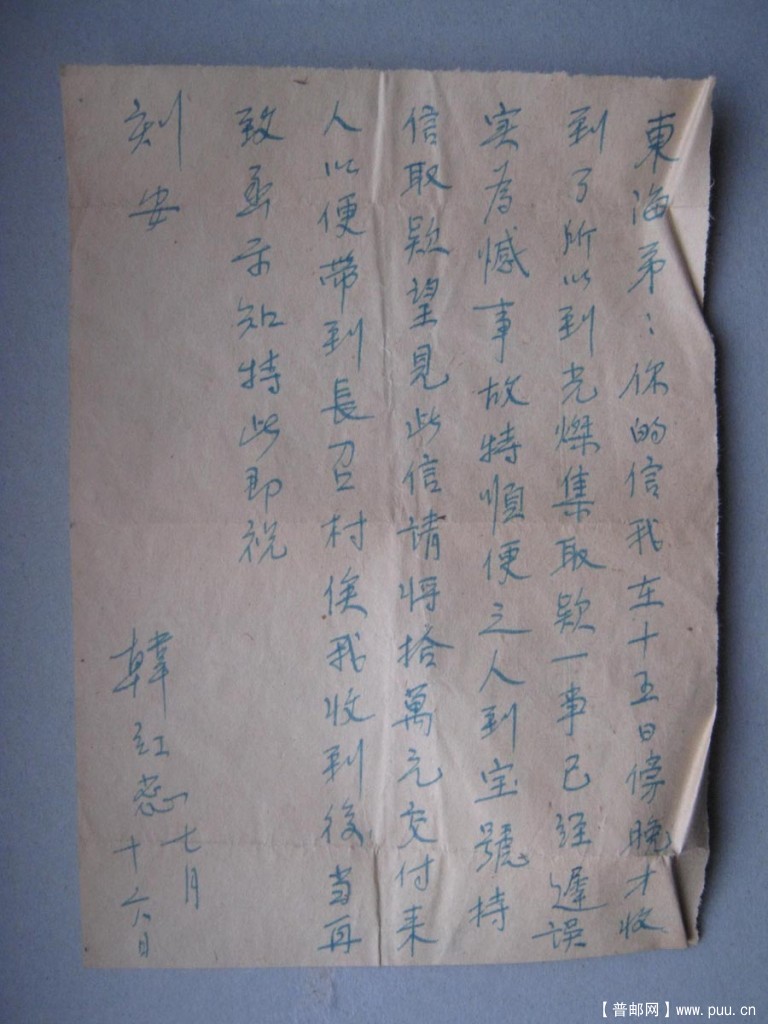 東海弟：你的信我在十五日傍晚才收
到了所以到光燦集取款一事已經遲误
実為憾事故特順便之人到宝號持
信取款望見此信請将拾萬元交付来
人以便帶到長召村俟我收到後当再
致函示知特此即祝
刻安
韓红
七月
十六日
【普邮网】www.puu.cn